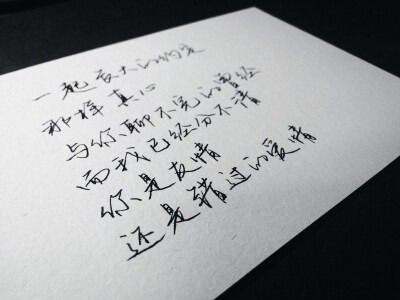 一起长大的约定
那样真心
与你聊不完的曾经
而我已经分不清
你是友情
还是错过的爱情